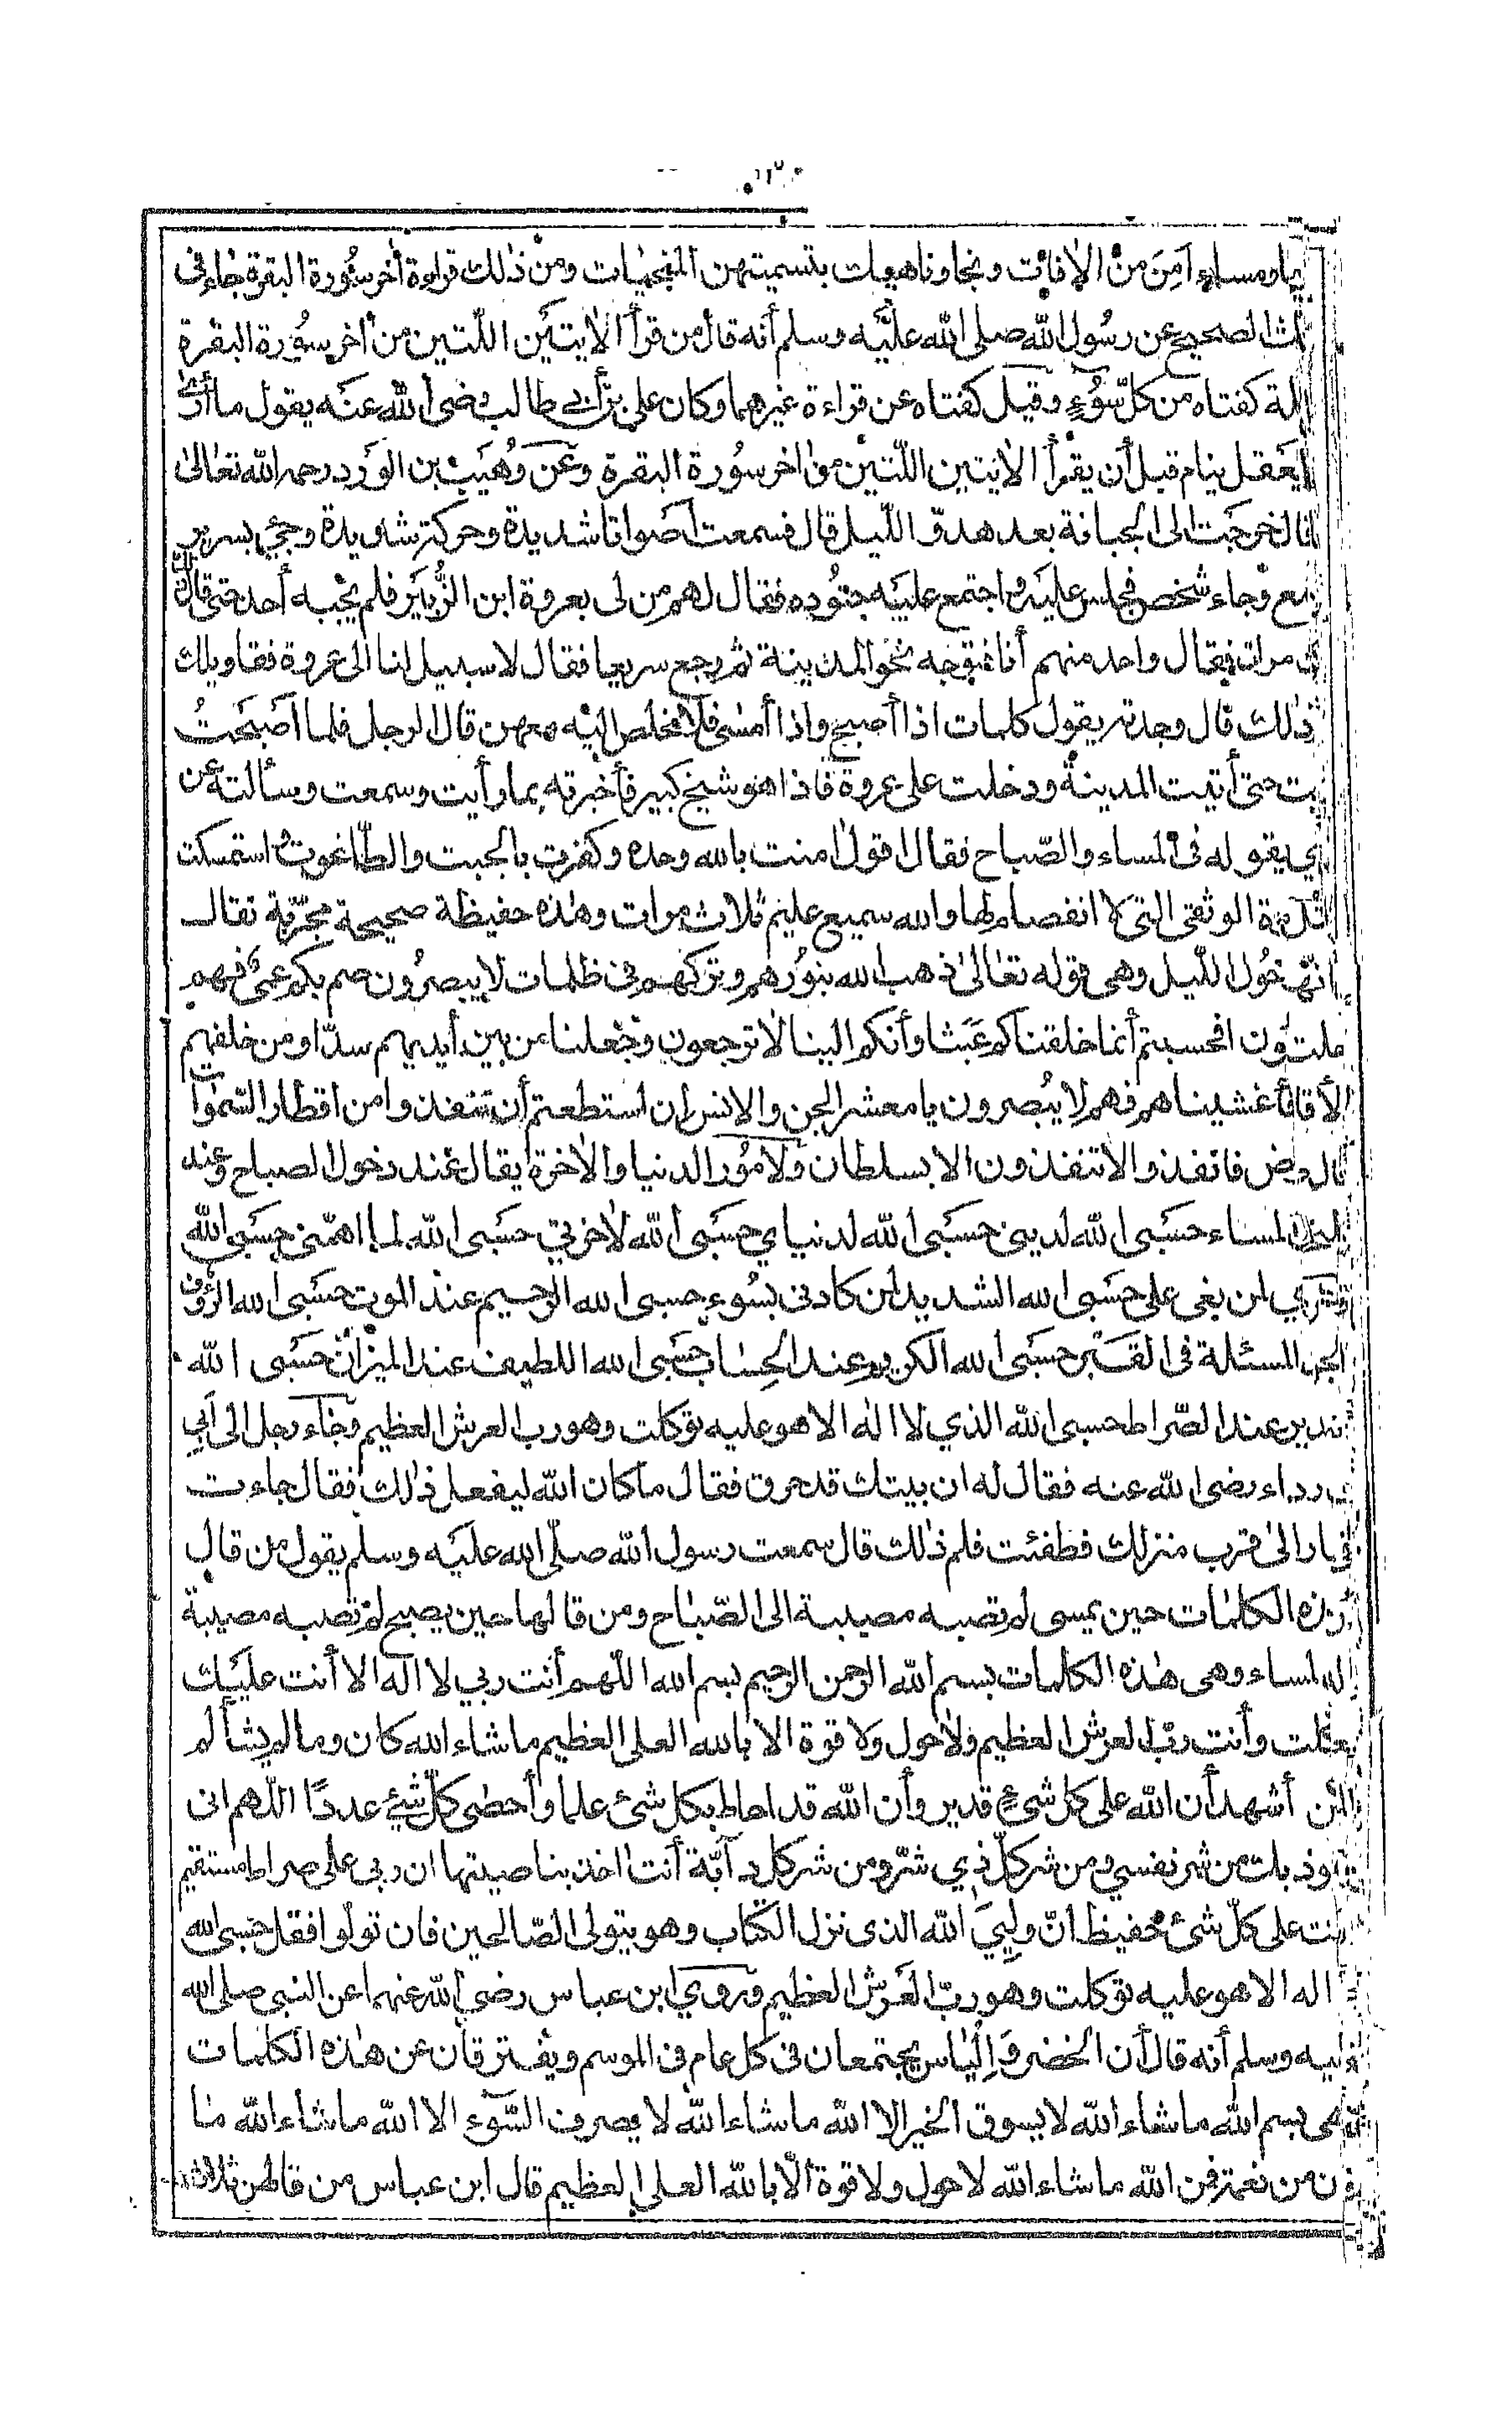 ومساء أمن من الأفات ونجا وناهيك بتسميتهن المنجيات ومن ذلك قراءة أخر سورة البقرة جاء فى
الصحيح عن رسول الله صلى الله عليه وسلم أنه قال من قرأ الايتين اللتين من أخر سورة البقرة
كفتاه من كل سوء وقيل كفتاه عن قراءة غيرهما وكان على بن أبي طالب رضى الله عنه يقول ما أرى
يعقل ينام قبل أن يقرأ الايتين اللتين من اخر سورة البقرة وعن وهيب بن الورد رحمه الله تعالى
قال خرجت الى الجبانة بعد هدؤ الليل قال فسمعت أصواتا شديدة وحركة شديدة وجيء بسرير
وجاء شخص فجلس عليه واجتمع عليه جنوده فقال لهم من لى بعروة ابن الزبير فلم يجبه أحد حتى قال
مرات فقال واحد منهم أنا فتوجه نحو المدينة ثم رجع سريعا فقال لا سبيل لنا الى عروة فقا ويلك
ذلك قال وجدته يقول كلمات اذا أصبح واذا أمسى فلا مخلص اليه معهن قال الرجل فلما أصبحت
حتى أتيت المدينة ودخلت على عروة فاذا هو شيخ كبير فأخبرته بما رأيت وسمعت وسألته عن
يقوله فى المساء والصباح فقال اقول امنت بالله وحده وكفرت بالجبت والطاغوت واستمسكت
الوثقى التى لا انفصام لها والله سميع عليم ثلاث مرات وهذه حفيظة صحيحة مجربة تقال
دخول الليل وهى قوله تعالى ذهب الله بنورهم وتركهم فى ظلمات لا يبصرون صم بكم عمى فهم
افحسبتم أنما خلقناكم عبثا وأنكم الينا لا ترجعون وجعلنا من بين أيديهم سدا ومن خلفهم
فأغشيناهم فهم لا يبصرون يا معشر الجن والانس ان استطعتم أن تنفذوا من اقطار السموات
فانفذوا لا تنفذون الا بسلطان ولأمور الدنيا والاخرة يقال عند دخول الصباح وعند
المساء حسبى الله لدينى حسبى الله لدنياي حسبى الله لأخرتي حسبى الله لما اهمنى حسبى الله
لمن بغى على حسبى الله الشديد لمن كادنى بسوء حسبى الله الرحيم عند الموت حسبى الله الرؤف
المسئلة فى القبر حسبى الله الكريم عند الحساب حسبى الله اللطيف عند الميزان حسبى الله
عند الصراط حسبى الله الذي لا اله الا هو عليه توكلت وهو رب العرش العظيم وجاء رجل الى أبي
رضى الله عنه فقال له ان بيتك قد حرق فقال ما كان الله ليفعل ذلك فقال جاءت
الى قرب منزلك فطفئت فلم ذلك قال سمعت رسول الله صلى الله عليه وسلم يقول من قال
الكلمات حين يمسى لم تصبه مصيبة الى الصباح ومن قالها حين يصبح لم تصبه مصيبة
وهى هذه الكلمات بسم الله الرحمن الرحيم بسم الله اللهم أنت ربي لا اله الا أنت عليك
وأنت رب العرش العظيم ولا حول ولا قوة الا بالله العلى العظيم ما شاء الله كان وما لم يشأ لم
أشهد أن الله على كل شئ قدير وأن الله قد احاط بكل شئ علما وأحصى كل شئ عددا اللهم انى
من شر نفسي ومن شر كل ذي شر ومن شر كل دآبة أنت اخذ بناصيتها ان ربى على صراط مستقيم
على كل شئ حفيظ ان وليي الله الذى نزل الكتاب وهو يتولى الصالحين فان تولوا فقل حسبى الله
اله الا هو عليه توكلت وهو رب العرش العظيم وروي ابن عباس رضي الله عنهما عن النبى صلى الله
وسلم أنه قال أن الخضر والياس يجتمعان فى كل عام فى الموسم ويفترقان عن هذه الكلمات
بسم الله ما شاء الله لا يسوق الخير الا الله ما شاء الله لا يصرف السوء الا الله ما شاء الله ما
من نعمة فمن الله ما شاء الله لا حول ولا قوة الا بالله العلى العظيم قال ابن عباس من قالهن ثلاث